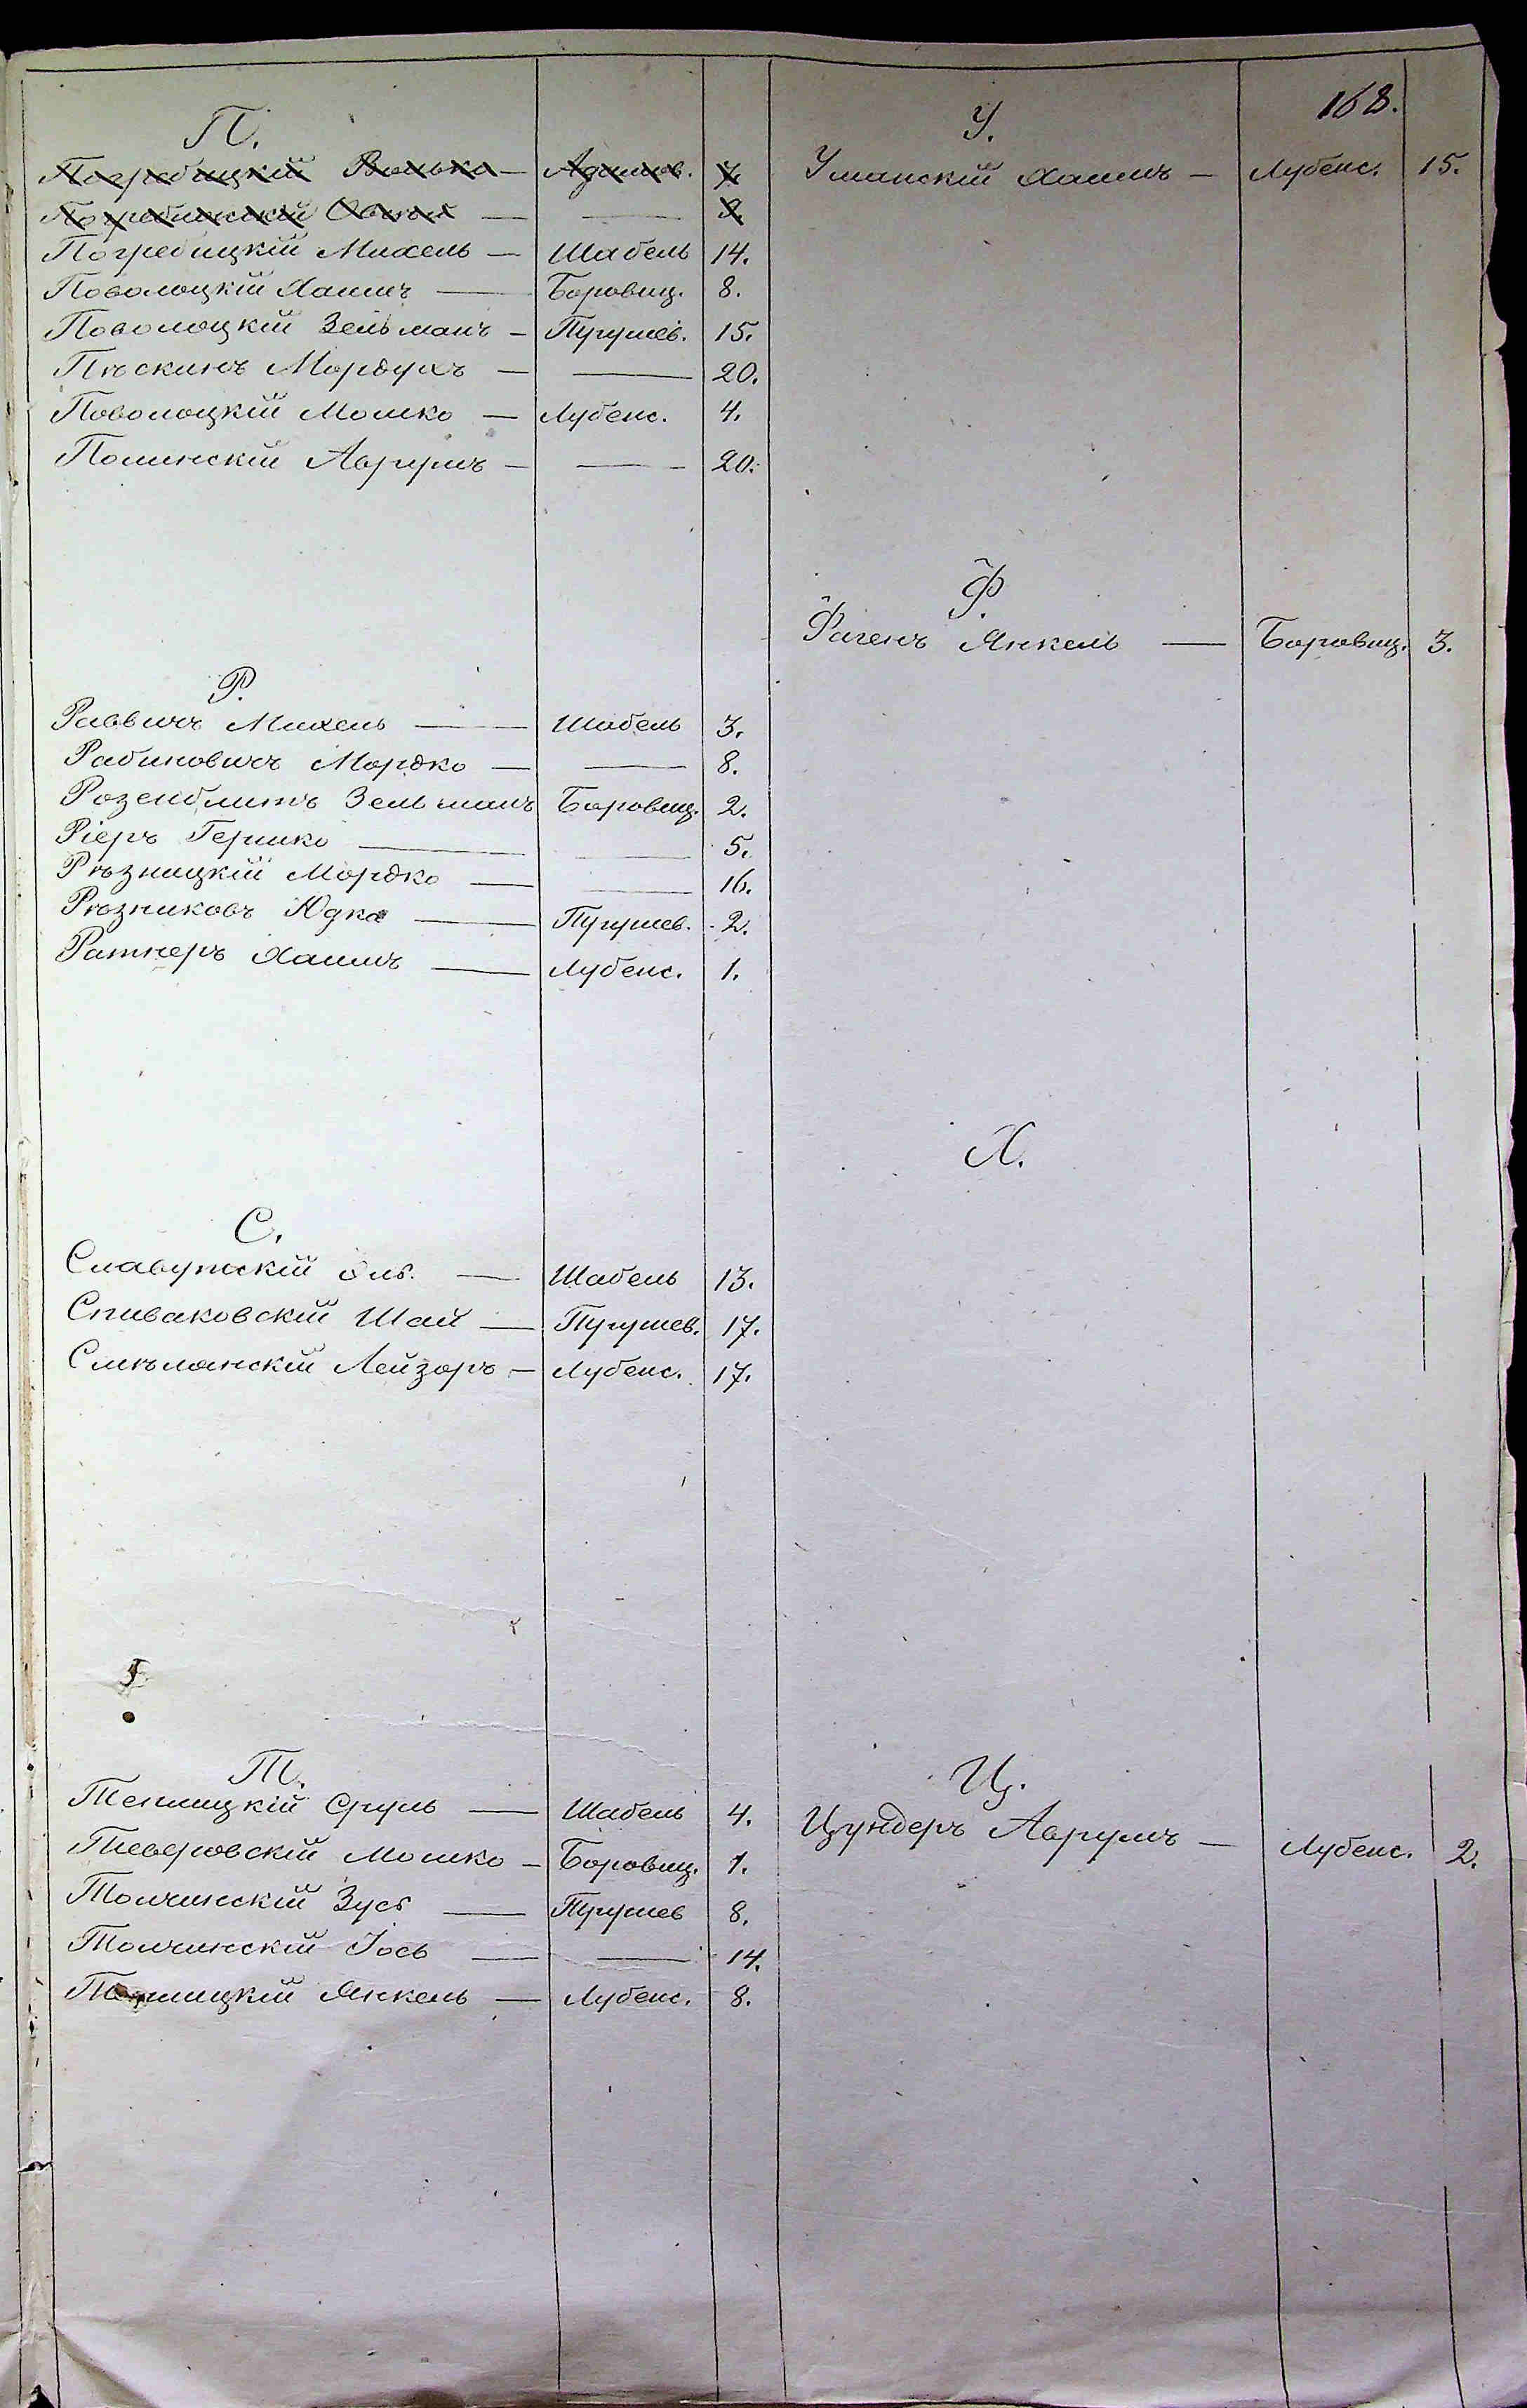 168.
П.
Погребицкій Волько — Адамов. 7.
Погребинскій Овшей — — 9.
Погребицкій Михель — Шабель 14.
Поволоцкій Хаимъ — Боровиц. 8.
Поволоцкій Зельманъ — Пугушев. 15.
Пѣскинъ Мордухъ — — 20.
Поволоцкій Мошко — Лубенс. 4.
Полинскій Аврумъ — — 20.
Р.
Раввичъ Михель — Шабель 3.
Рабиновичъ Мордко — — 8.
Розенблитъ Зельманъ Боровиц. 2.
Ріеръ Гершко — — 5.
Рѣзницкій Мордко — — 16.
Рѣзниковъ Юдка — Пугушев. 2.
Ратнеръ Хаимъ — Лубенс. 1.
С.
Славутскій — Шабель 13.
Спиваковскій Шай — Пугушев. 17.
Смѣлянскій Лейзоръ — Лубенс. 17.
Т.
Теплицкій Сруль — Шабель 4.
Тиверовскій Мошко — Боровиц. 1.
Толчинскій Зусь — Пугушев 8.
Толчинскій Іось — — 14.
Теплицкій Янкель — Лубенс. 8.
У.
Уманскій Хаимъ — Лубенс. 15.
Ф.
Фагенъ Янкель — Боровиц. 3.
Х.
Ц.
Цундеръ Аврумъ — Лубенс. 2.